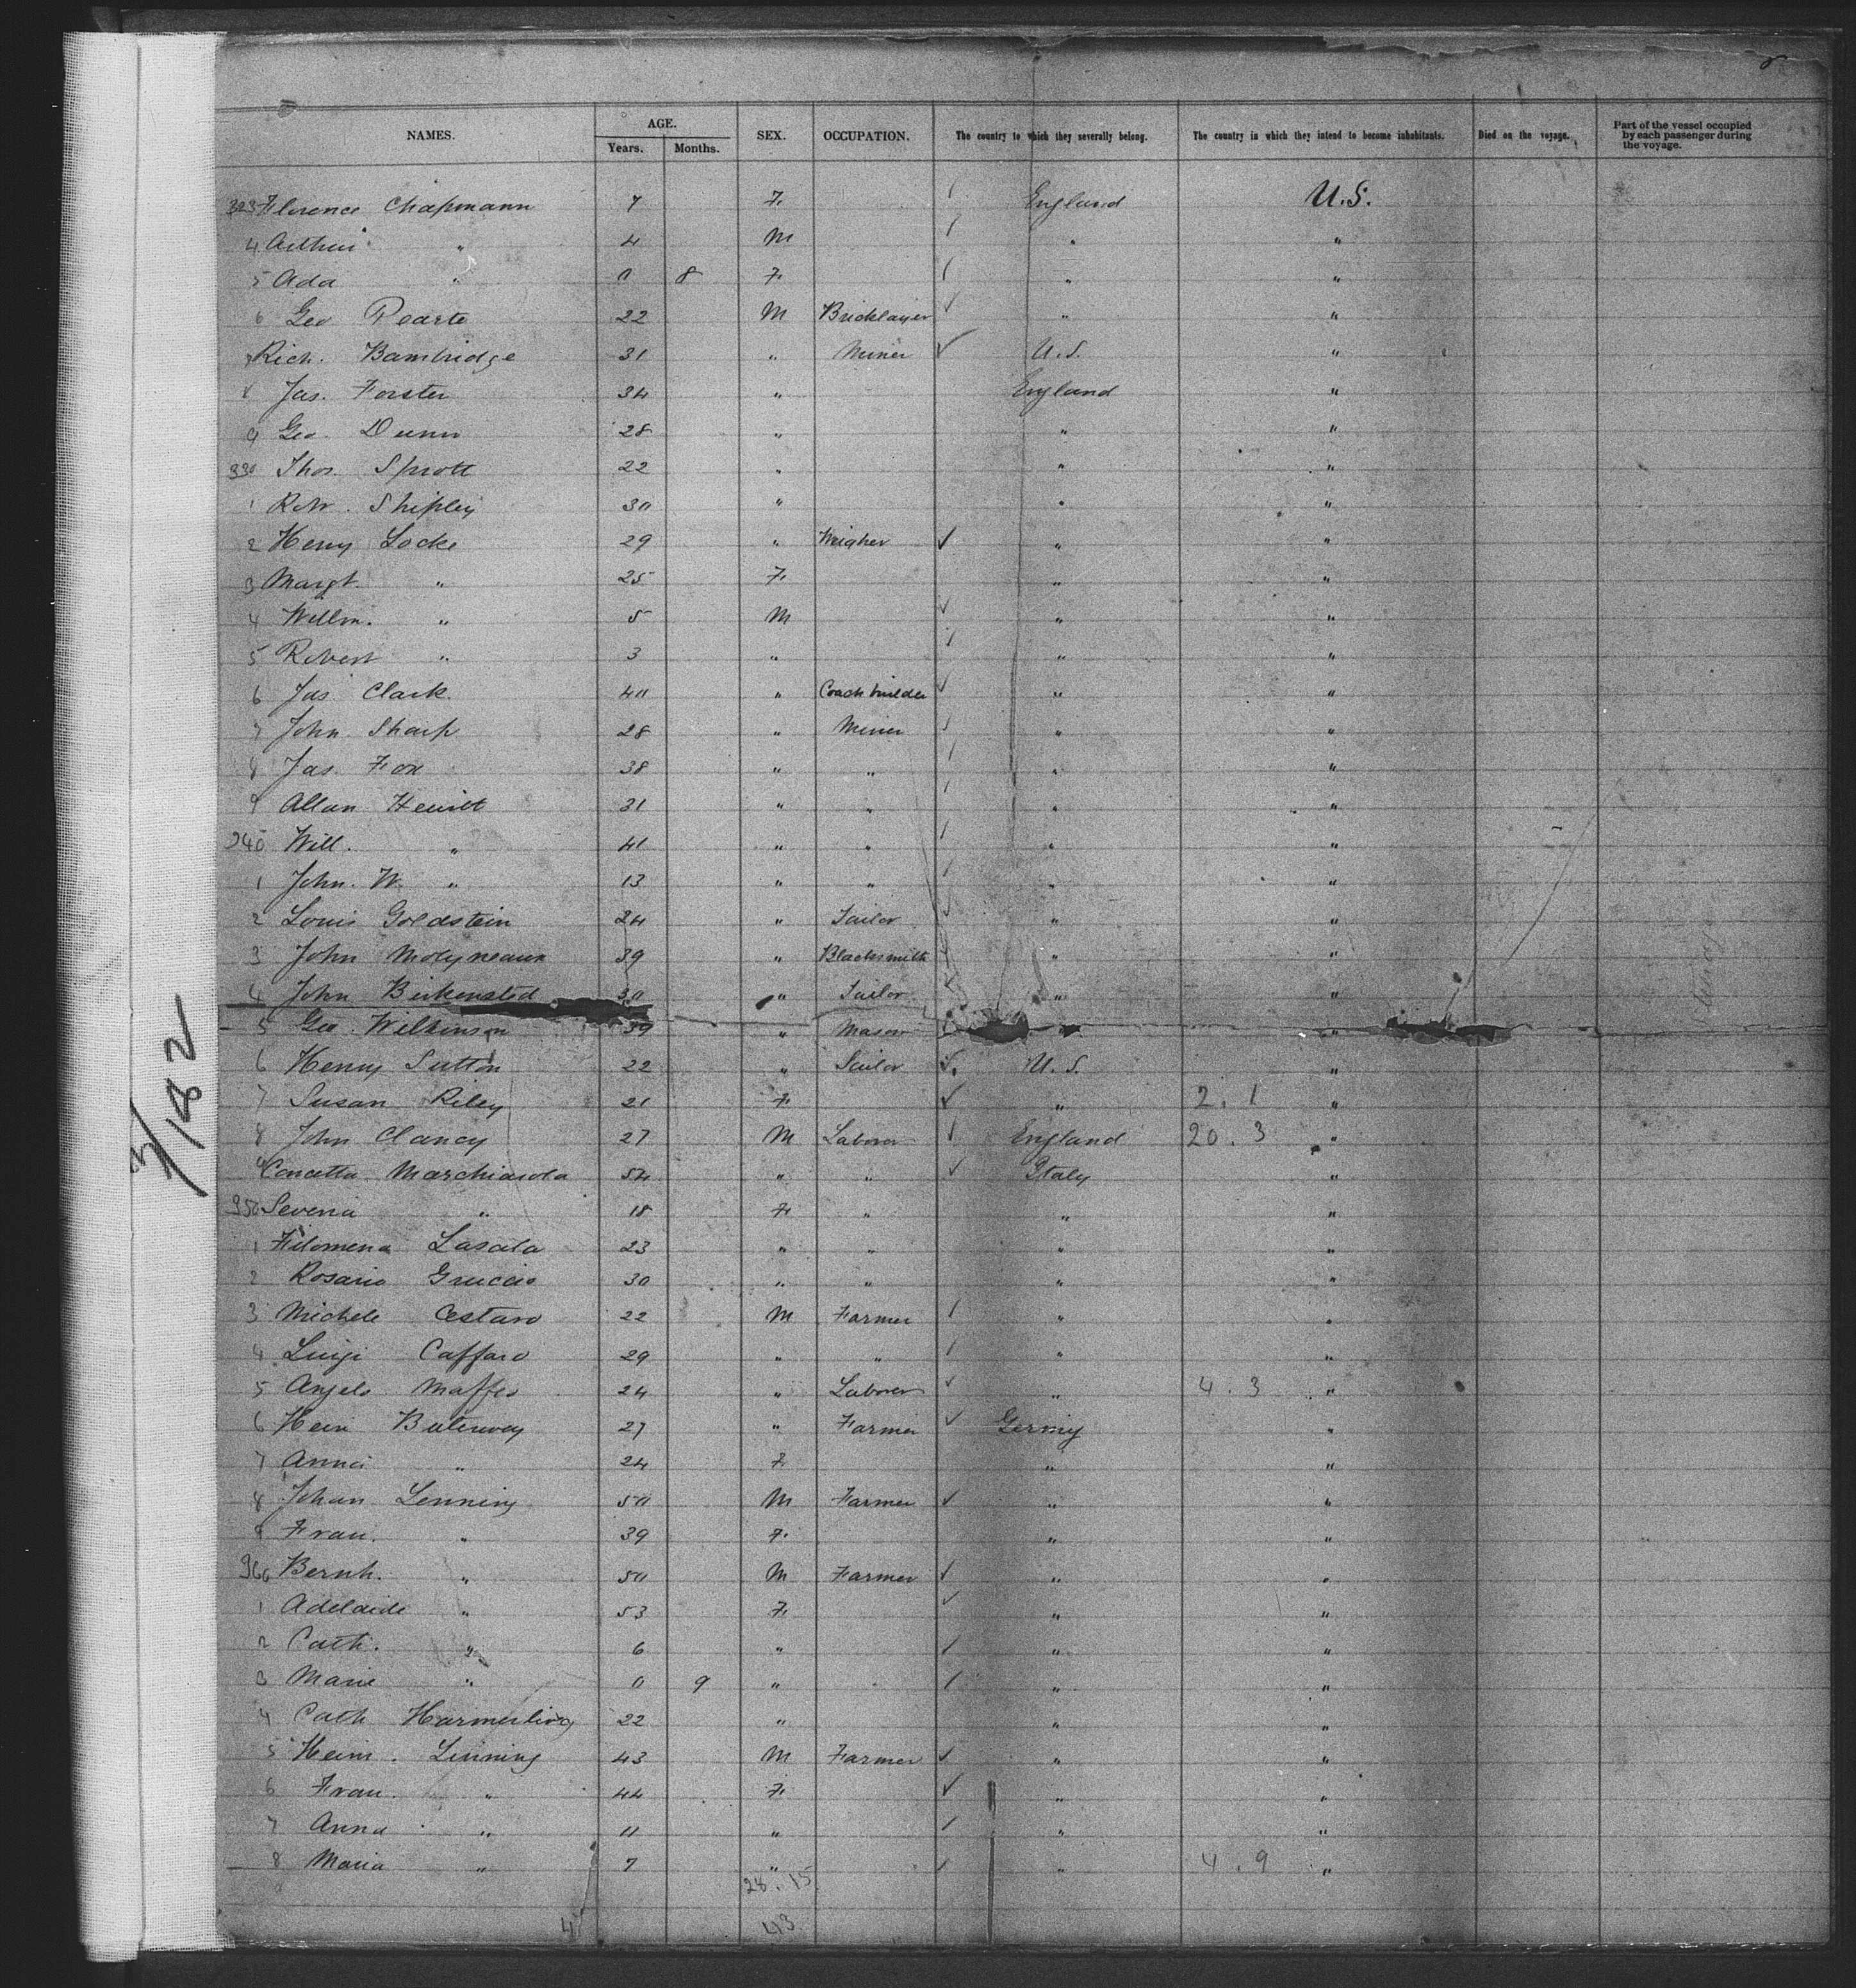 NAMES. AGE. SEX. OCCUPATION. The country to which they severally belong. The country in which they intend to become inhabitants. Died on the voyage. Part of the vessel occupied by each passenger during the voyage.
Years. Months.
323 Florence Chapmann 7 F. England U.S.
4 Arthur " 4 M " "
5 Ada " 0 8 F. " "
6 Geo 22 M Bricklayer " "
7 Rich. Bambridge 31 " Miner U.S. "
8 Jas. Forster 34 " England "
9 Geo. Dunn 28 " " "
330 Thos. Sprott 22 " " "
1 Robt. Shipley 30 " " "
2 Henry Locke 29 " Weigher " "
3 Margt. " 25 F. " "
4 Willm. " 5 M " "
5 Robert " 3 " " "
6 Jas. Clark. 40 " Coachbuilder " "
7 John Sharp 28 " Miner " "
8 Jas. Fox 38 " " " "
9 Allan Hewitt 31 " " " "
340 Will. " 41 " " " "
1 John. W. " 13 " " " "
2 Louis Goldstein 24 " Tailor " "
3 John Molyneaux 39 " Blacksmith " "
4 John Birkensted 30 " Tailor " "
5 Geo. Wilkinson 39 " Mason " "
6 Henry Sutton 22 " Sailor U.S. "
7 Susan Riley 21 F. " 2.1 "
8 John Clancy 27 M Laborer England 20.3 "
9 Concetta Marchiasola 54 " " Italy "
350 Severia " 18 F. " " "
1 Filomena Lascala 23 " " " "
2 Rosario 30 " " " "
3 Michele Cestaro 22 M Farmer " "
4 Luigi Caffaro 29 " " " "
5 Angelo Maffeo 24 " Laborer " 4.3 "
6 Hein 27 " Farmer Germy "
7 Anna " 24 F. " "
8 Johan Lenning 50 M Farmer " "
9 Frau. " 39 F. " "
360 Bernh. " 50 M Farmer " "
1 Adelaide " 53 F. " "
2 Cath. " 6 " " "
3 Marie " 0 9 " " "
4 Cath Harmerling 22 " " "
5 Heinr. Linning 43 M Farmer " "
6 Frau. " 44 F. " "
7 Anna " 11 " " "
8 Maria " 7 " " 4.9 "
28.15
43